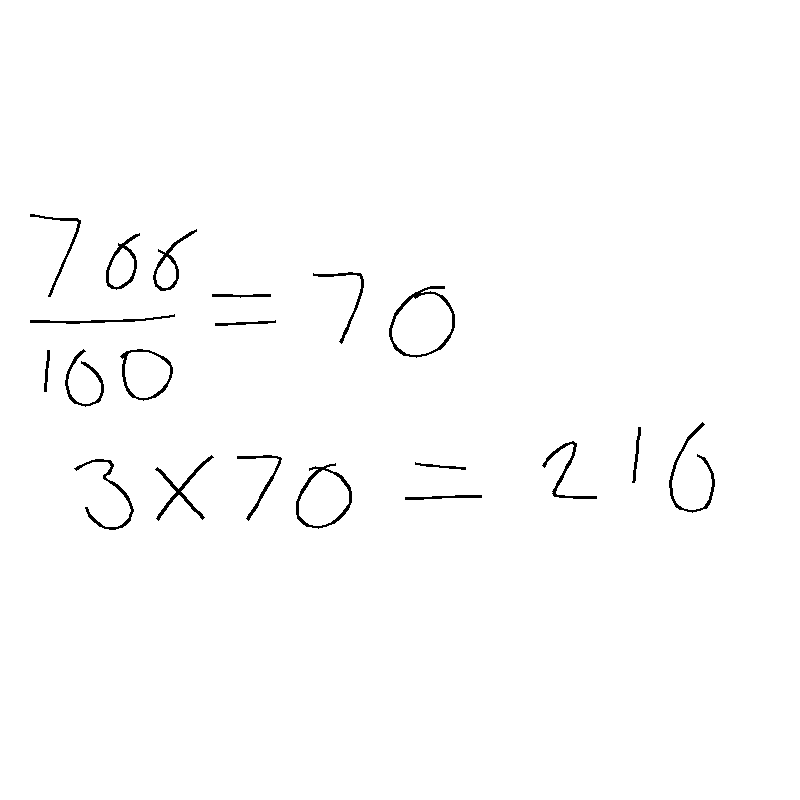 700/100 = 70
3 × 70 = 210